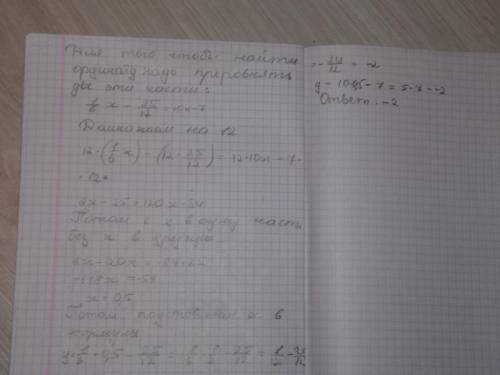 Для того чтобы найти
ординату надо прировнять
две эти части:
1/6 x - 25/12 = 10x - 7
Домножаем на 12
12·(1/6 x) - (12· 25/12) = 12·10x - 7·
·12
2x - 25 = 120x - 84
Потом с x в одну часть
без x в другую
x = 0,5
Потом подставляем x в
формулы
y = 1/6 · 0,5 - 25/12 = 1/6 · 1/2 - 25/12 = 1/12 - 25/12
= - 24/12 = -2
y = 10·0,5 - 7 = 5 - 7 = -2
Ответ: -2